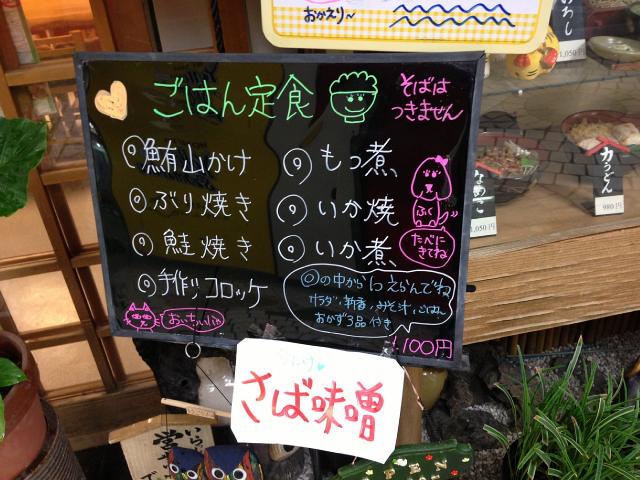 おかえり～
ごはん定食
そばは
つきません
◎鮪山かけ
◎ぶり焼き
◎鮭焼き
◎手作りコロッケ
◎もつ煮
◎いか焼
◎いか煮
ふく
たべに
きてね
◎の中から1つえらんでね
サラダ、新香、みそ汁、ごはん
おかず3品付き
おいちぃにゃ
1,100円
さば味噌
おろし
1,050円
力うどん
980円
なめこ
1,050円